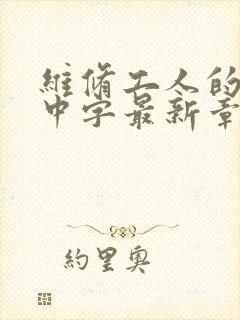 維脩工人的
中字最新章
約里奧